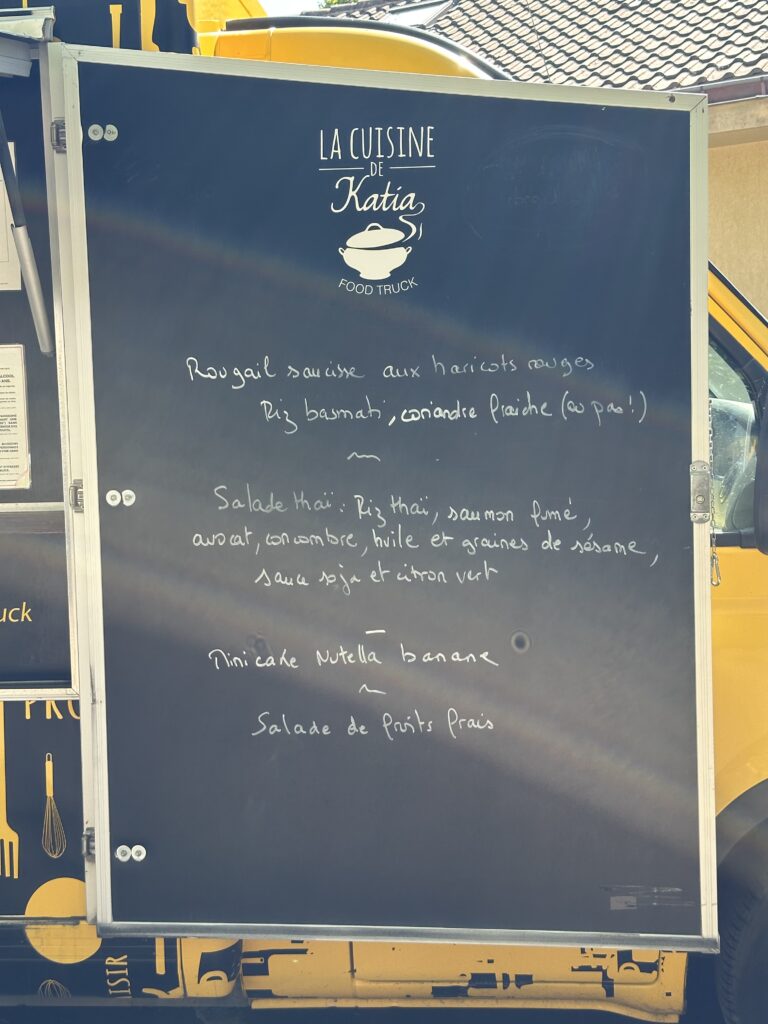 LA CUISINE
DE
Katia
FOOD TRUCK
Rougail saucisse aux haricots rouges
Riz basmati, coriandre fraiche (ou pas!)
~
Salade thaï : Riz thaï, saumon fumé,
avocat, concombre, huile et graines de sésame,
sauce soja et citron vert
_
Mini cake Nutella banane
~
Salade de fruits frais
uck
PRO
ISIR